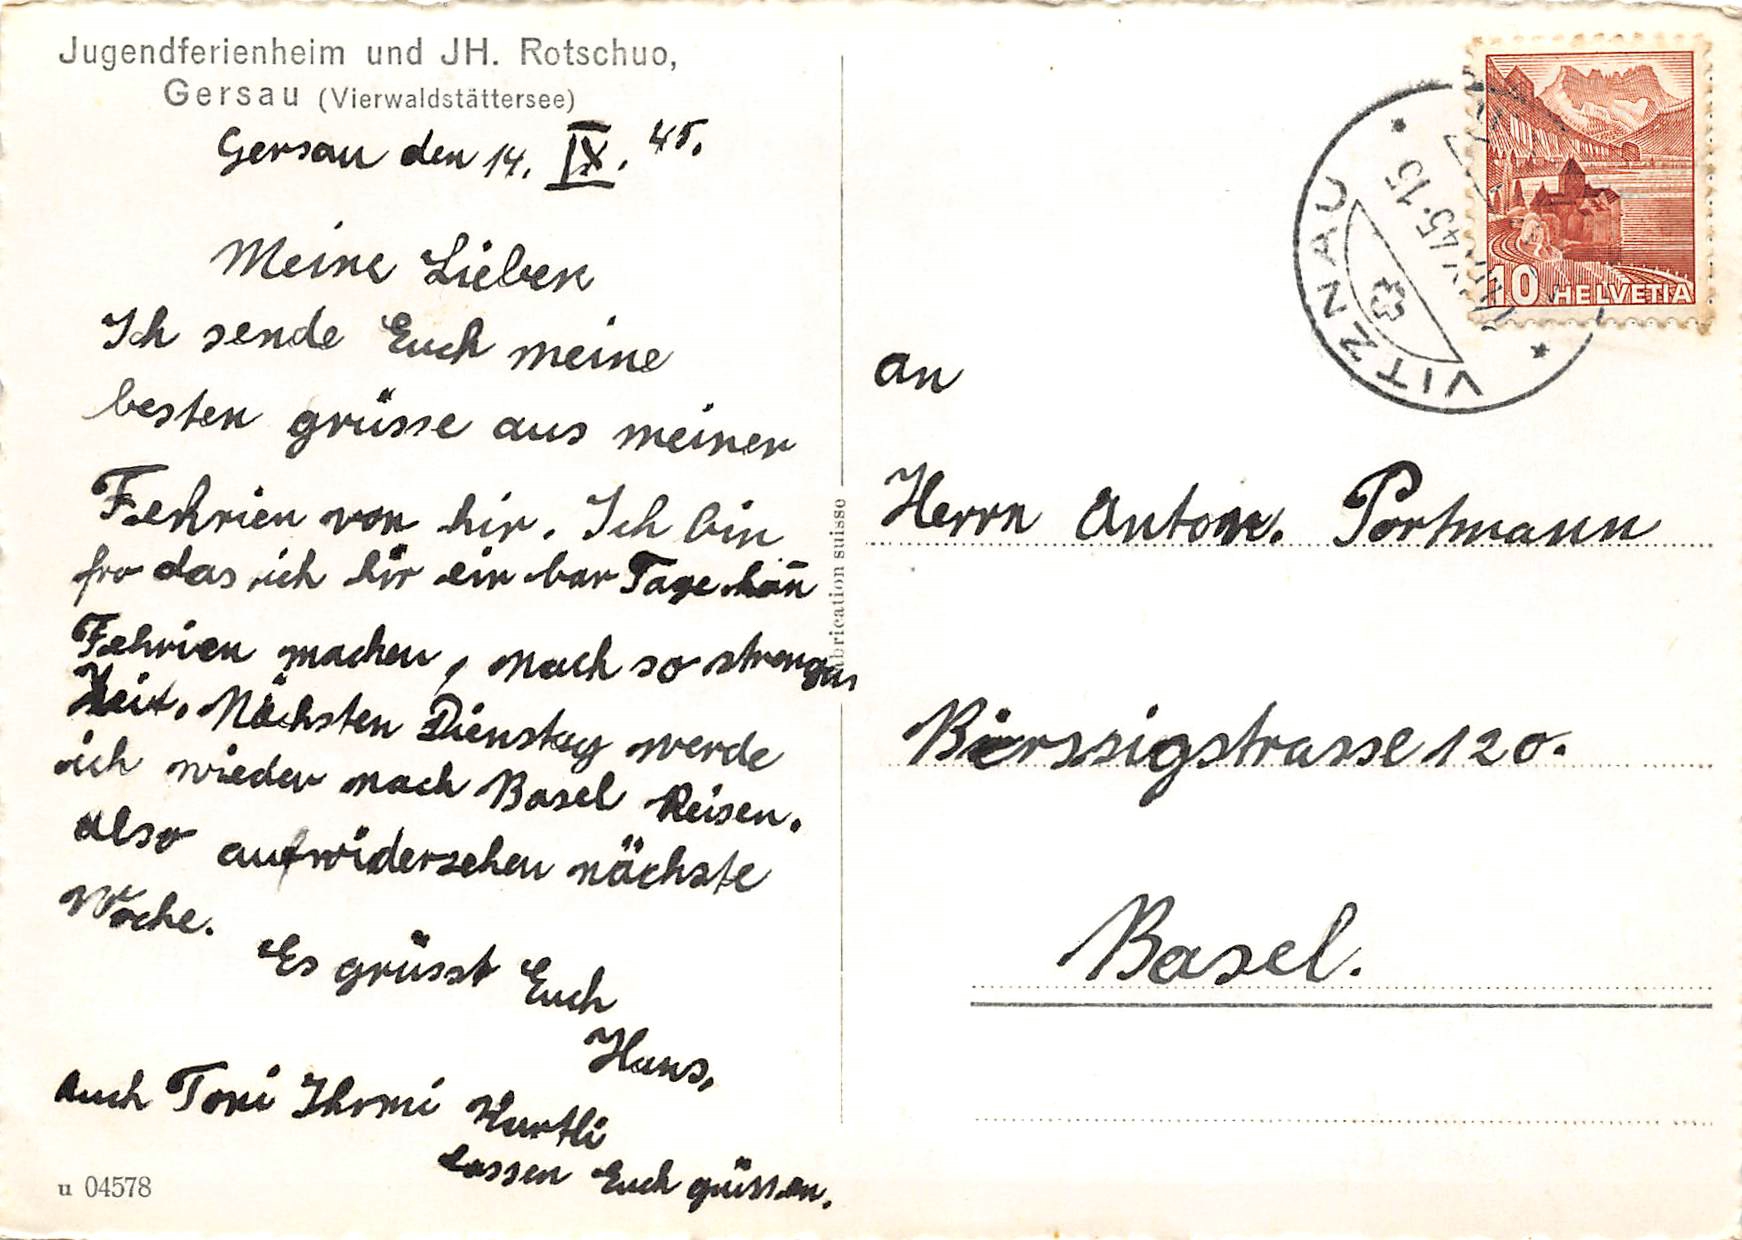 Jugendferienheim und JH. Rotschuo,
Gersau (Vierwaldstättersee)
Gersau den 14. IX. 45.
Meine Lieben
Ich sende Euch meine
besten grüsse aus meiner
Fehrien von hir. Ich bin
fro das ich hir ein bar Tage kan̄
Fehrien machen, nach so strengen
Zeit. Nächsten Dienstag werde
ich wieder nach Basel Reisen.
also aufwidersehen nächste
Woche.
Es grüsst Euch
Hans,
Auch Toni Kurtli
lassen Euch grüssen.
u 04578
Fabrication suisse
VITZNAU
45·15
10 HELVETIA
an
Herrn Anton. Portmann
Birssigstrasse 120.
Basel.